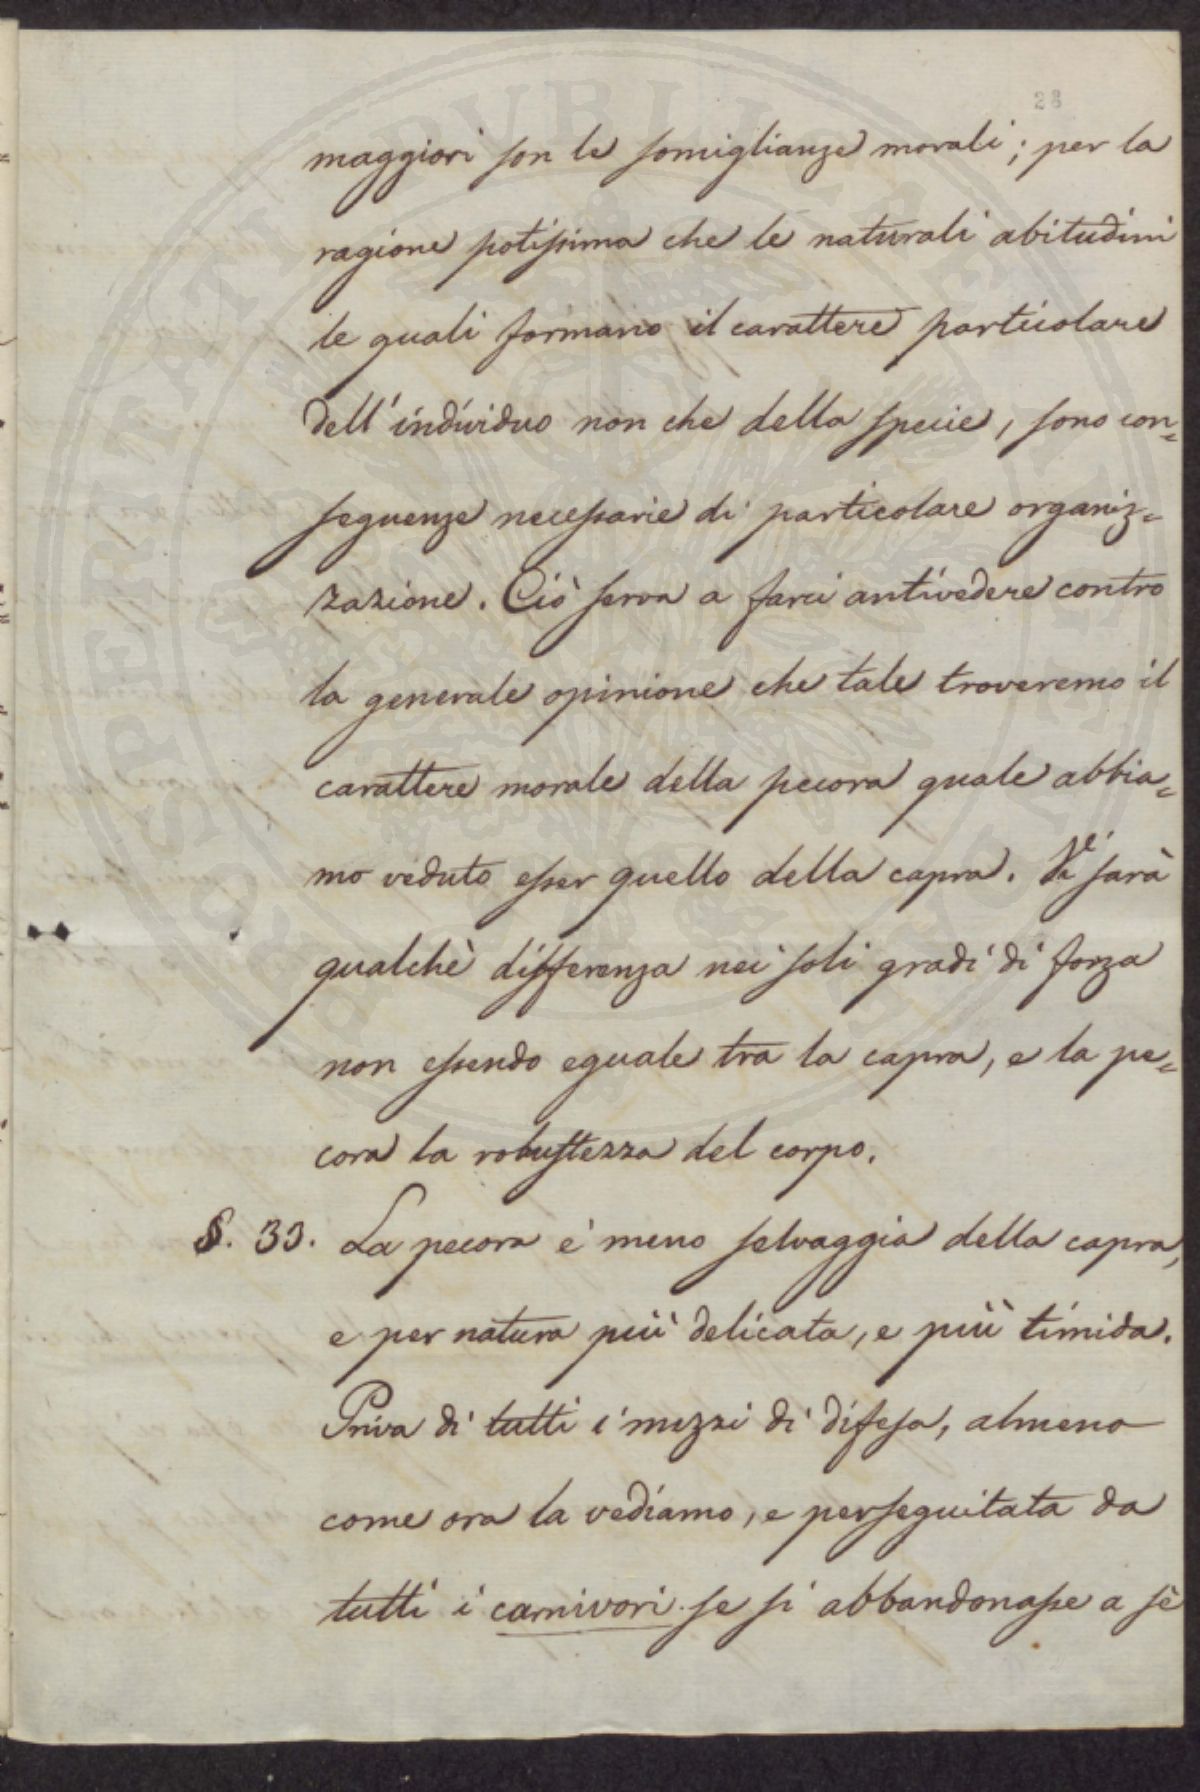 28
maggiori son le somiglianze morali; per la
ragione potissima che le naturali abitudini
le quali formano il carattere particolare
dell'individuo non che della specie, sono con=
seguenze necessarie di particolare organiz=
zazione. Ciò serva a farci antivedere contro
la generale opinione che tale troveremo il
carattere morale della pecora quale abbia=
mo veduto esser quello della capra. Vi sarà
qualchè differenza nei soli gradi di forza
non essendo eguale tra la capra, e la pe=
cora la robustezza del corpo.
§. 33. La pecora è meno selvaggia della capra,
e per natura più delicata, e più timida.
Priva di tutti i mezzi di difesa, almeno
come ora la vediamo, e perseguitata da
tutti i carnivori se si abbandonasse a sè
PROSPERITATI PUBLICAE